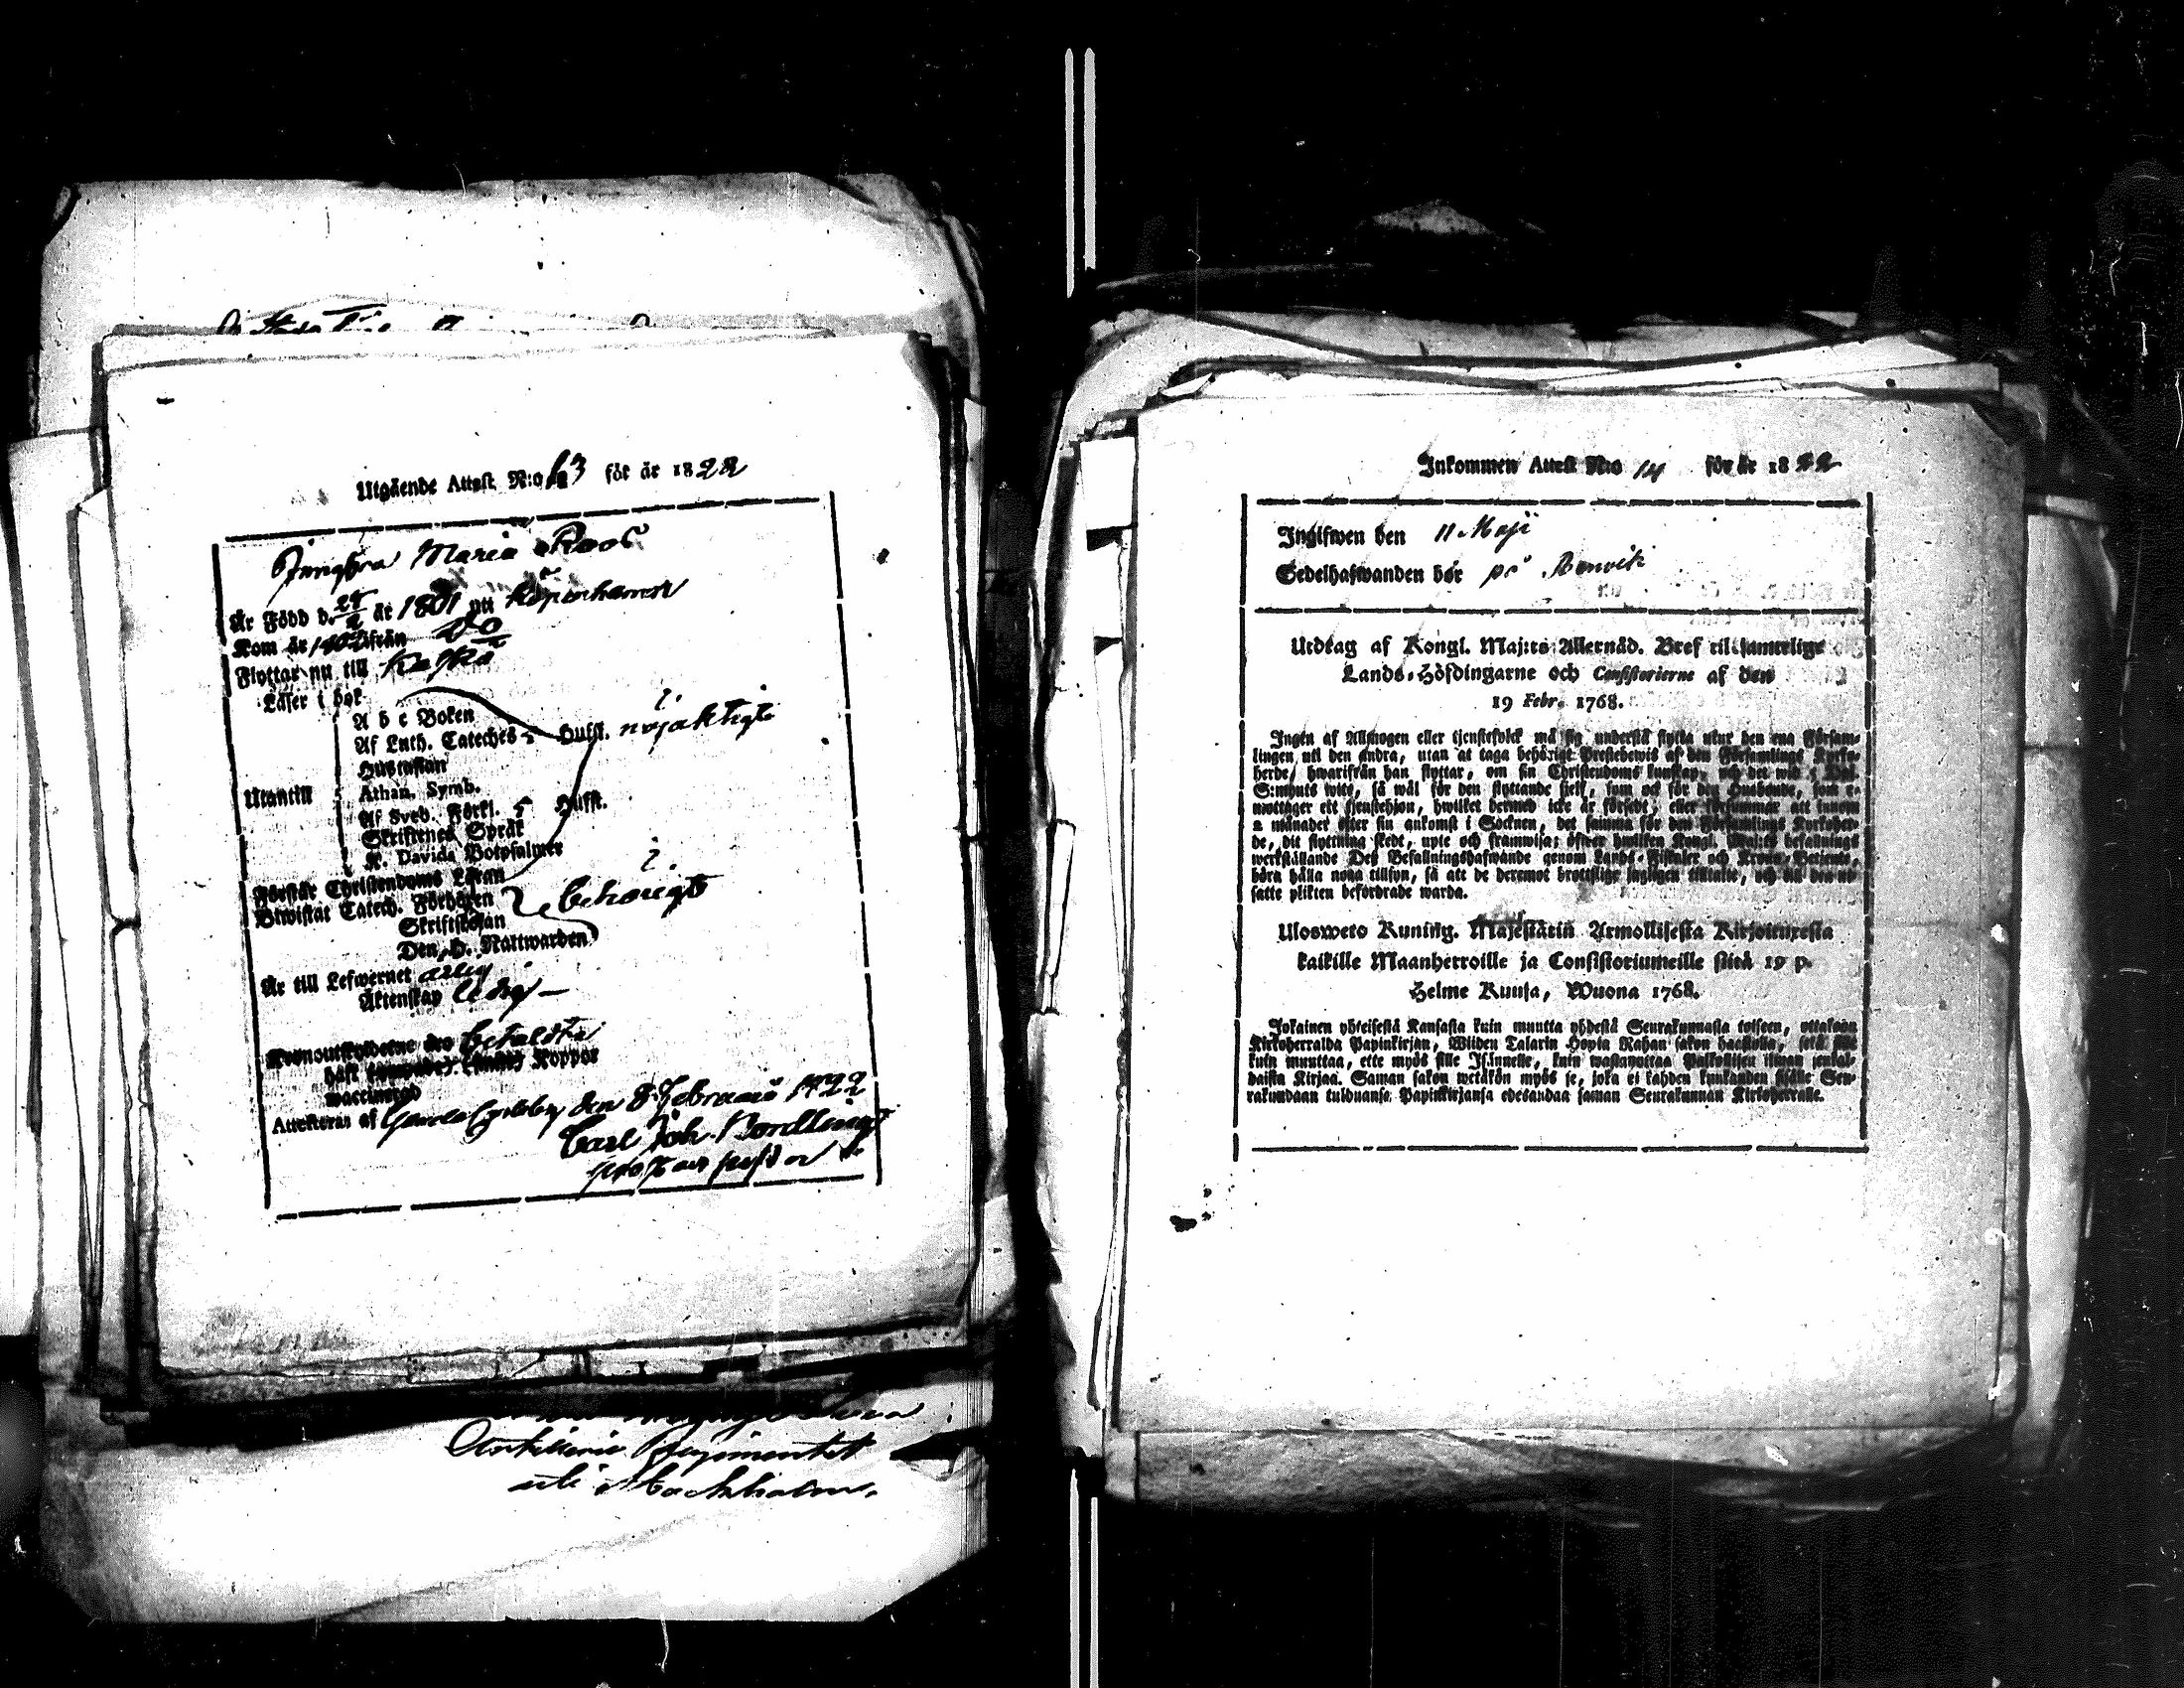 Utgående Attest. N:o 63 för år 1822
Jungfru Maria Roos
Är Född d. år 1801 uti Köpinhamn
Kom år ifrån
Flyttar nu till
Läser i bok
A b c Boken
Af Luth. Cateches Hufst. nöjaktigt
Hustaflan
Utantill Athan. Symb.
Af Sveb. Förkl. 5 Hufst.
Skriftenes Språk
K. Davids Botpsalmer
Förstår Christendoms Läran
Biwistat Catech. Förhören behörigt
Skriftskolan
Den H. Nattwarden
Är till Lefwernet ärlig
Äktenskap ledig
Kronoutskylderne äro betaldta
haft Koppor
waccinerad
Attesteras af Gamlacarleby den 8 Februarii 1822
Carl Joh. Nordlingh
Artillerie Regimentet
uti Stockholm.
Inkommen Attest N:o 14 för år 1822
Ingifwen den 11 Maji
Sedelhafwanden bor på
Utdrag af Kongl. Maj:ts Allernåd. Bref til samtelige
Lands-Höfdingarne och Consistorierne af den
19 Febr. 1768.
Ingen af Allmogen eller tjenstefolck må sig understå flytta utur den ena Försam-
lingen uti den andra, utan at taga behörigt Prestebewis af den Församlings Kyrko-
herde, hwarifrån han flyttar, om sin Christendoms kunskap, och det wid 5 Dal.
S:mynts wite, så wäl för den flyttande sjelf, som och för den Husbonde, som e-
mottager ett tjenstehjon, hwilket dermed icke är försedt; eller försummar att innom
2 månader efter sin ankomst i Socknen, det samma för den Församlings Kyrkoher-
de, dit flyttning skedt, upte och framwisa; öfwer hwilken Kongl. Maj:ts befallnings
werkställande Des Befallningshafwande genom Lands-Fiskaler och Krono-Betjente,
böra hålla noga tillsyn, så att de deremot brottslige lagligen tilltalte, och till den ut-
satte plikten befordrade warda.
Ulosweto Kuning. Majestätin Armollisesta Kirjoituxesta
kaikille Maanherroille ja Consistoriumeille siitä 19 p.
Helme Kuusa, Wuona 1768.
Jokainen yhteisestä Kansasta kuin muutta yhdestä Seurakunnasta toiseen, ottakoon
Kirkoherralda Papinkirjan, Wiiden Talarin Hopia Rahan sakon haastolla, sekä sille
kuin muuttaa, ette myös sille Isännelle, kuin wastanottaa Palkollisen ilman sensal-
daista Kirjaa. Saman sakon wetäkön myös se, joka ei kahden kuukauden sisälle Seu-
rakundaan tulduansa Papinkirjansa edesandaa saman Seurakunnan Kirkoherralle.